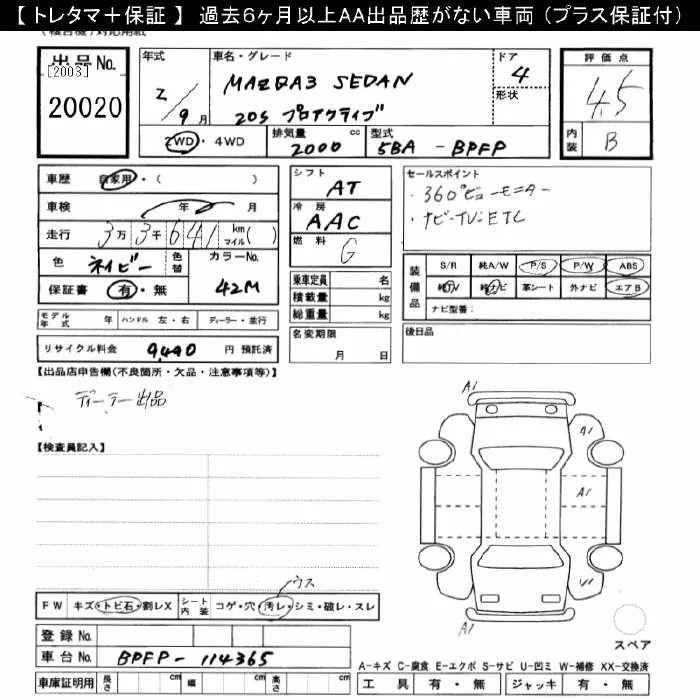 【 トレタマ＋保証 】 過去6ヶ月以上AA出品歴がない車両 (プラス保証付)
出品No.
[2003]
20020
年式
2/9月
車名・グレード
MAZDA3 SEDAN
20S プロアクティブ
ドア
4
形状
評価点
4.5
内装
B
2WD・4WD
排気量
2000 cc
型式
5BA - BPFP
車歴 自家用・( )
車検 年 月
走行 3万3千641 km マイル( )
色 ネイビー 色替 カラーNo.
保証書 有・無 42M
シフト
AT
冷房
AAC
燃料
G
乗車定員 名
積載量 kg
総重量 kg
セールスポイント
・360°ビューモニター
・ナビ-TV-ETC
装備品
S/R 純A/W P/S P/W ABS
純TV 純ナビ 革シート 外ナビ エアB
ナビ型番:
モデル年式 年 ハンドル 左・右 ディーラー・並行
名変期限
月 日
後日品
リサイクル料金 9,490 円 預託済
【出品店申告欄(不良箇所・欠品・注意事項等)】
ディーラー出品
【検査員記入】
A1
A1
A1
A1
ウス
FW キズ・トビ石・割レX シート内装 コゲ・穴・汚レ・シミ・破レ・スレ
登録No.
車台No. BPFP-114365
車庫証明用 長さ cm 幅 cm 高さ cm
スペア
A-キズ C-腐食 E-エクボ S-サビ U-凹ミ W-補修 XX-交換済
工具 有・無 ジャッキ 有・無